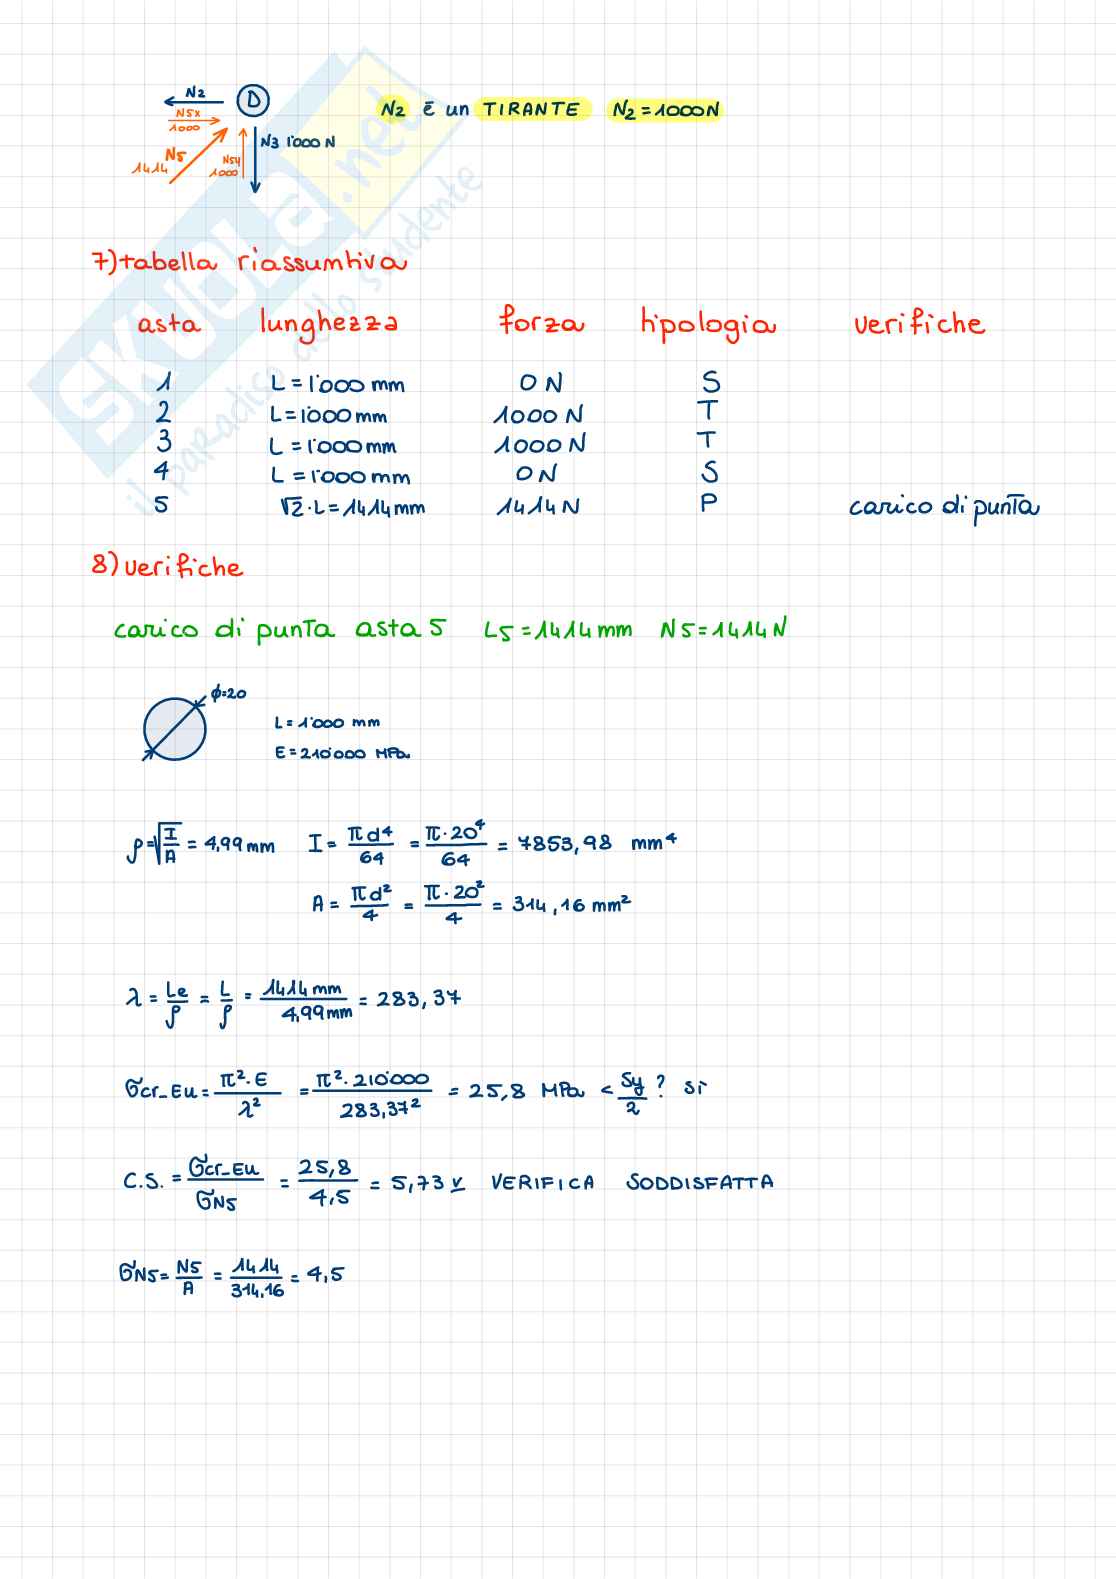 N2 D N2 è un TIRANTE N2 = 1000N
N5x
1000
N3 1'000 N
N5 N5y
1414 1000
7) tabella riassuntiva
asta lunghezza forza tipologia verifiche
1 L = 1'000 mm 0 N S
2 L = 1'000 mm 1000 N T
3 L = 1'000 mm 1000 N T
4 L = 1'000 mm 0 N S
5 √2 · L = 1414 mm 1414 N P carico di punta
8) verifiche
carico di punta asta 5 L5 = 1414 mm N5 = 1414 N
ϕ=20
L = 1'000 mm
E = 210'000 MPa
ρ = √(I/A) = 4,99 mm I = πd⁴/64 = π · 20⁴/64 = 7853,98 mm⁴
A = πd²/4 = π · 20²/4 = 314,16 mm²
λ = Le/ρ = L/ρ = 1414 mm/4,99 mm = 283,37
σcr_Eu = π² · E/λ² = π² · 210'000/283,37² = 25,8 MPa < Sy/2 ? sì
C.S. = σcr_Eu/σN5 = 25,8/4,5 = 5,73 v VERIFICA SODDISFATTA
σN5 = N5/A = 1414/314,16 = 4,5
SKUOLA.net
il paradiso dello studente